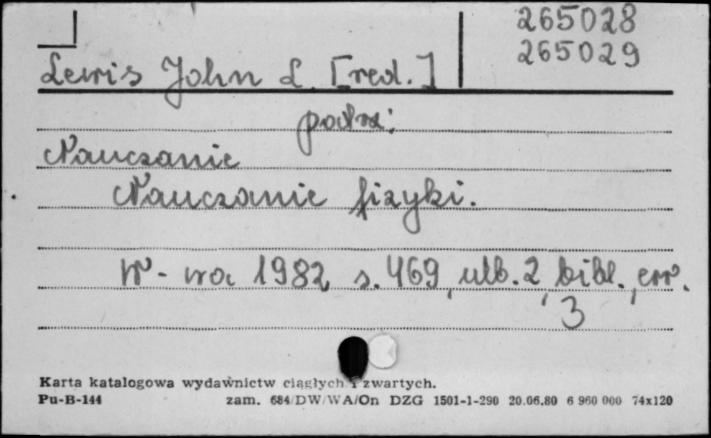 265028
265029
Lewis John L. [red.]
patrz:
Nauczanie
Nauczanie fizyki.
W-wa 1982, s. 469, ulb. 2, bibl., err.
3
Karta katalogowa wydawnictw ciągłych i zwartych.
Pu-B-144 zam. 684/DW/WA/On DZG 1501-1-290 20.06.80 6 960 000 74x120